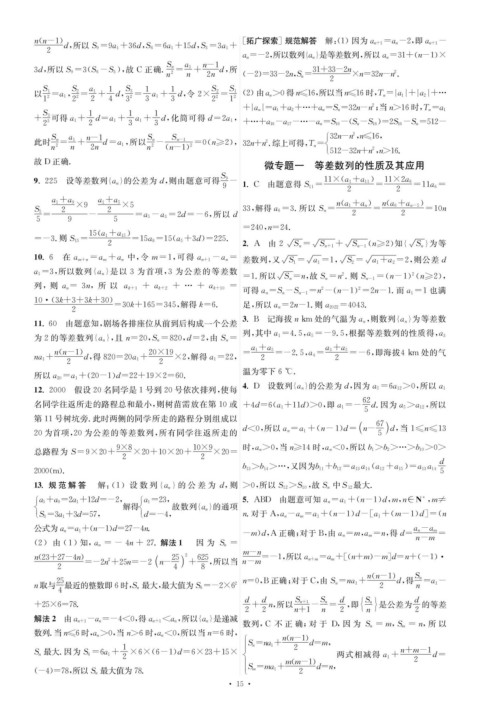 $\frac{n(n-1)}{2}d$,所以 $S_9=9a_1+36d,S_6=6a_1+15d,S_3=3a_1+$
$3d$,所以 $S_9=3(S_6-S_3)$,故 C 正确. $\frac{S_n}{n^2}=\frac{a_1}{n}+\frac{n-1}{2n}d$,所
以 $\frac{S_1}{1^2}=a_1,\frac{S_2}{2^2}=\frac{a_1}{2}+\frac{1}{4}d,\frac{S_3}{3^2}=\frac{1}{3}a_1+\frac{1}{3}d$,令 $2\times\frac{S_2}{2^2}=\frac{S_1}{1^2}$
$+\frac{S_3}{3^2}$ 可得 $a_1+\frac{1}{2}d=a_1+\frac{1}{3}a_1+\frac{1}{3}d$,化简可得 $d=2a_1$,
此时 $\frac{S_n}{n^2}=\frac{a_1}{n}+\frac{n-1}{2n}d=a_1$,所以 $\frac{S_n}{n^2}-\frac{S_{n-1}}{(n-1)^2}=0(n\geqslant2)$,
故 D 正确.
9. 225 设等差数列$\{a_n\}$的公差为 $d$,则由题意可得 $\frac{S_9}{9}-$
$\frac{S_5}{5}=\frac{\frac{a_1+a_9}{2}\times9}{9}-\frac{\frac{a_1+a_5}{2}\times5}{5}=a_5-a_3=2d=-6$,所以 $d$
$=-3$. 则 $S_{15}=\frac{15(a_1+a_{15})}{2}=15a_8=15(a_5+3d)=225$.
10. 6 在 $a_{m+n}=a_m+a_n$ 中,令 $m=1$,可得 $a_{n+1}-a_n=$
$a_1=3$,所以数列$\{a_n\}$是以 3 为首项,3 为公差的等差数
列,则 $a_n=3n$,所以 $a_{k+1}+a_{k+2}+\cdots+a_{k+10}=$
$\frac{10\cdot(3k+3+3k+30)}{2}=30k+165=345$,解得 $k=6$.
11. 60 由题意知,剧场各排座位从前到后构成一个公差
为 2 的等差数列$\{a_n\}$,且 $n=20,S_n=820,d=2$,由 $S_n=$
$na_1+\frac{n(n-1)}{2}d$,得 $820=20a_1+\frac{20\times19}{2}\times2$,解得 $a_1=22$,
所以 $a_{20}=a_1+(20-1)d=22+19\times2=60$.
12. 2000 假设 20 名同学是 1 号到 20 号依次排列,使每
名同学往返所走的路程总和最小,则树苗需放在第 10 或
第 11 号树坑旁. 此时两侧的同学所走的路程分别组成以
20 为首项,20 为公差的等差数列,所有同学往返所走的
总路程为 $S=9\times20+\frac{9\times8}{2}\times20+10\times20+\frac{10\times9}{2}\times20=$
2000(m).
13. 规范解答 解:(1)设数列$\{a_n\}$的公差为 $d$,则
$\begin{cases}a_4+a_9=2a_1+12d=-2,\\S_3=3a_1+3d=57,\end{cases}$ 解得 $\begin{cases}a_1=23,\\d=-4,\end{cases}$ 故数列$\{a_n\}$的通项
公式为 $a_n=a_1+(n-1)d=27-4n$.
(2)由(1)知,$a_n=-4n+27$. 解法 1 因为 $S_n=$
$\frac{n(23+27-4n)}{2}=-2n^2+25n=-2\left(n-\frac{25}{4}\right)^2+\frac{625}{8}$,所以当
$n$ 取与 $\frac{25}{4}$ 最近的整数即 6 时,$S_n$ 最大,最大值为 $S_6=-2\times6^2$
$+25\times6=78$.
解法 2 由 $a_{n+1}-a_n=-4<0$,得 $a_{n+1}<a_n$,所以$\{a_n\}$是递减
数列. 当 $n\leqslant6$ 时,$a_n>0$,当 $n>6$ 时,$a_n<0$,所以当 $n=6$ 时,
$S_n$ 最大. 因为 $S_6=6a_1+\frac{1}{2}\times6\times(6-1)d=6\times23+15\times$
$(-4)=78$,所以 $S_n$ 最大值为 78.
[拓广探索] 规范解答 解:(1)因为 $a_{n+1}=a_n-2$,即 $a_{n+1}-$
$a_n=-2$,所以数列$\{a_n\}$是等差数列,所以 $a_n=31+(n-1)\times$
$(-2)=33-2n,S_n=\frac{31+33-2n}{2}\times n=32n-n^2$.
(2)由 $a_n>0$ 得 $n\leqslant16$,所以当 $n\leqslant16$ 时,$T_n=|a_1|+|a_2|+\cdots$
$+|a_n|=a_1+a_2+\cdots+a_n=S_n=32n-n^2$;当 $n>16$ 时,$T_n=a_1$
$+\cdots+a_{16}-a_{17}-\cdots-a_n=S_{16}-(S_n-S_{16})=2S_{16}-S_n=512-$
$32n+n^2$. 综上可得,$T_n=\begin{cases}32n-n^2,n\leqslant16,\\512-32n+n^2,n>16.\end{cases}$
微专题一 等差数列的性质及其应用
1. C 由题意得 $S_{11}=\frac{11\times(a_1+a_{11})}{2}=\frac{11\times2a_6}{2}=11a_6=$
33,解得 $a_6=3$. 所以 $S_n=\frac{n(a_1+a_n)}{2}=\frac{n(a_6+a_{n-5})}{2}=10n$
$=240,n=24$.
2. A 由 $2\sqrt{S_n}=\sqrt{S_{n+1}}+\sqrt{S_{n-1}}(n\geqslant2)$知$\{\sqrt{S_n}\}$为等
差数列,又 $\sqrt{S_1}=\sqrt{a_1}=1,\sqrt{S_2}=\sqrt{a_1+a_2}=2$,则公差 $d$
$=1$. 所以 $\sqrt{S_n}=n$,故 $S_n=n^2$. 则 $S_{n-1}=(n-1)^2(n\geqslant2)$,
可得 $a_n=S_n-S_{n-1}=n^2-(n-1)^2=2n-1$. 而 $a_1=1$ 也满
足,所以 $a_n=2n-1$. 则 $a_{2022}=4043$.
3. B 记海拔 $n$ km 处的气温为 $a_n$,则数列$\{a_n\}$为等差数
列,其中 $a_1=4.5,a_5=-9.5$,根据等差数列的性质得,$a_3$
$=\frac{a_1+a_5}{2}=-2.5,a_4=\frac{a_3+a_5}{2}=-6$,即海拔4 km 处的气
温为零下 6 ℃.
4. D 设数列$\{a_n\}$的公差为 $d$,因为 $a_5=6a_{12}>0$,所以 $a_1$
$+4d=6(a_1+11d)>0$,即 $a_1=-\frac{62}{5}d$. 因为 $a_5>a_{12}$,所以
$d<0$,所以 $a_n=a_1+(n-1)d=\left(n-\frac{67}{5}\right)d$,当 $1\leqslant n\leqslant13$
时,$a_n>0$,当 $n\geqslant14$ 时,$a_n<0$,所以 $b_1>b_2>\cdots>b_{11}>0>$
$b_{13}>b_{14}>\cdots$,又因为$b_{11}+b_{12}=a_{12}a_{13}(a_{11}+a_{14})=a_{12}a_{13}\frac{d}{5}$
$>0$,所以 $S_{12}>S_{11}$,故 $S_n$ 中 $S_{12}$最大.
5. ABD 由题意可知 $a_n=a_1+(n-1)d,m,n\in\mathbf{N}^*,m\neq$
$n$. 对于 A,$a_n-a_m=a_1+(n-1)d-[a_1+(m-1)d]=(n$
$-m)d$,A 正确;对于 B,由 $a_m=n,a_n=m$,得 $d=\frac{a_n-a_m}{n-m}=$
$\frac{m-n}{n-m}=-1$,所以 $a_{n+m}=a_m+[(n+m)-m]d=n+(-1)\cdot$
$n=0$,B 正确;对于 C,由 $S_n=na_1+\frac{n(n-1)}{2}d$,得 $\frac{S_n}{n}=a_1-$
$\frac{d}{2}+\frac{d}{2}n$,所以 $\frac{S_{n+1}}{n+1}-\frac{S_n}{n}=\frac{d}{2}$,即$\left\{\frac{S_n}{n}\right\}$是公差为 $\frac{d}{2}$ 的等差
数列,C 不正确;对于 D,因为 $S_n=m,S_m=n$,所以
$\begin{cases}S_n=na_1+\frac{n(n-1)}{2}d=m,\\S_m=ma_1+\frac{m(m-1)}{2}d=n,\end{cases}$ 两式相减得 $a_1+\frac{n+m-1}{2}d=$
· 15 ·